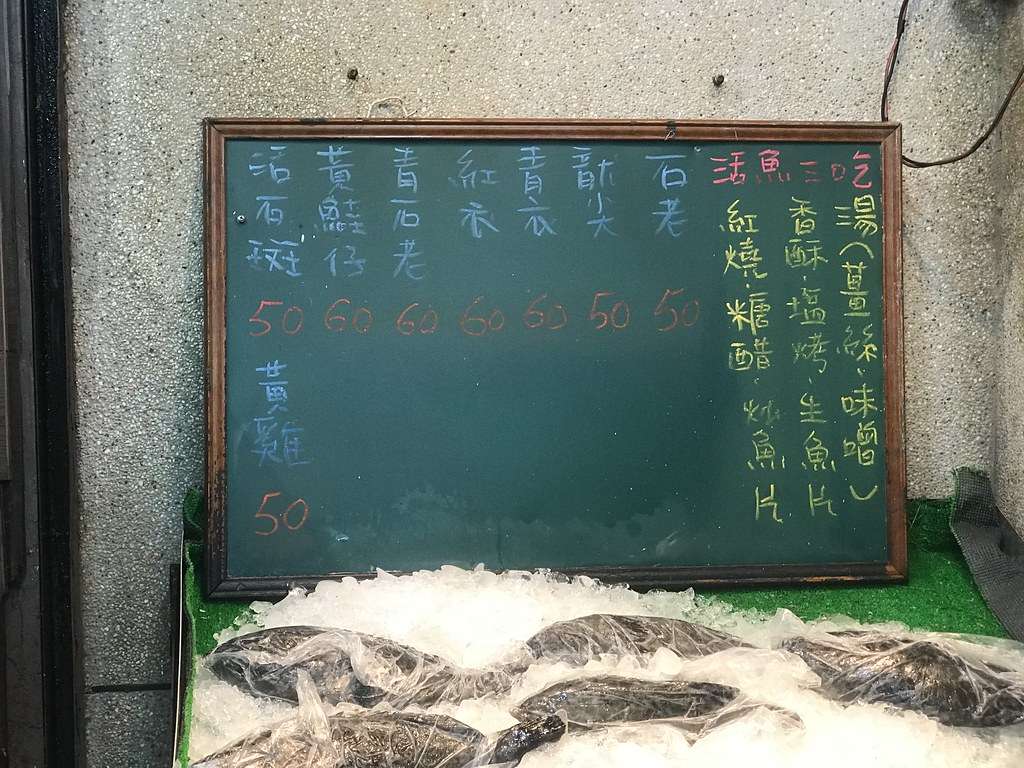 活魚三吃
湯(薑絲、味噌)
香酥、塩烤、生魚片
紅燒、糖醋、炒魚片
石老
50
尖
50
青衣
60
紅衣
60
青石老
60
黃鮭仔
60
活石斑
50
黃雞
50